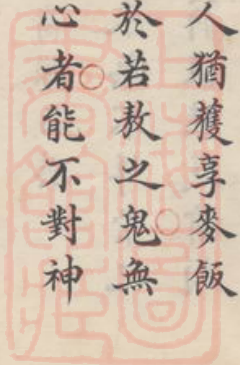 人猶獲享麥飯
於若敖之鬼無
心者能不對神